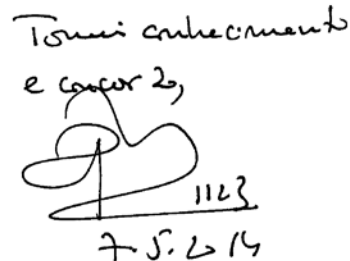 Tomei conhecimento
e concordo,
1123
7.5.2014